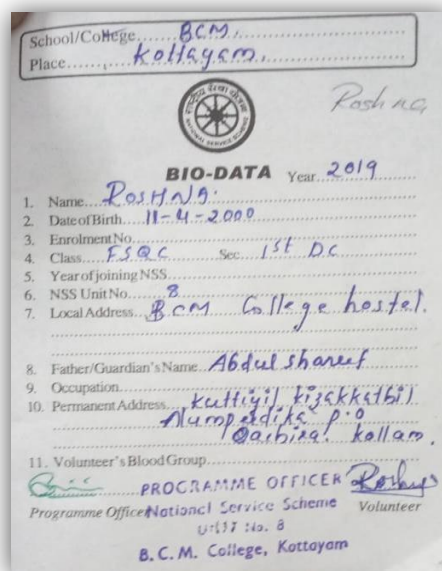 School/College BCM,
Place Kottayam,
राष्ट्रीय सेवा योजना
NATIONAL SERVICE SCHEME
Roshna
BIO-DATA Year 2019
1. Name ROSHNA.
2. Date of Birth 11-4-2000
3. Enrolment No.
4. Class FSQC Sec 1st DC
5. Year of joining NSS
6. NSS Unit No. 8
7. Local Address BCM College hostel.
8. Father/Guardian's Name Abdul shareef
9. Occupation
10. Permanent Address Kuttiyil kizakkathil
P.O
kollam.
11. Volunteer's Blood Group
PROGRAMME OFFICER
Programme Officer National Service Scheme Volunteer
Unit No. 8
B.C.M. College, Kottayam